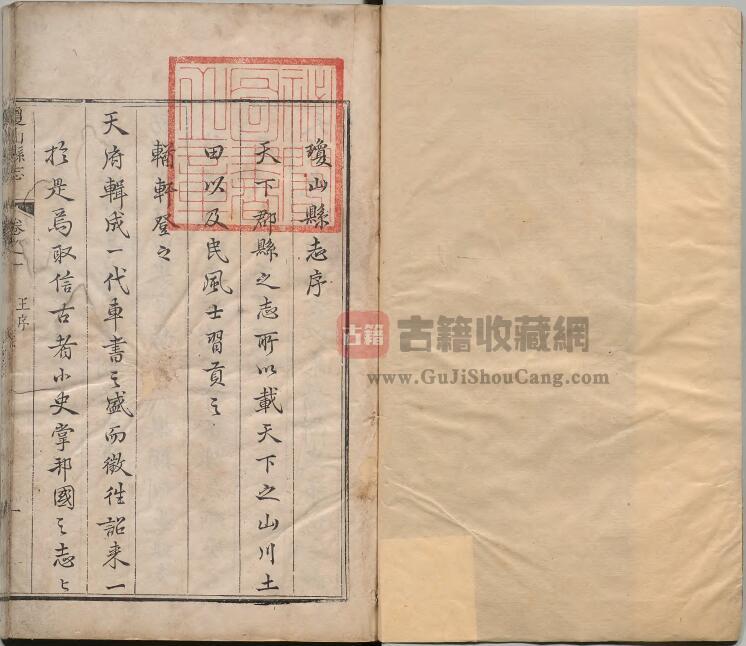 瓊山縣志序
天下郡縣之志所以載天下之山川土
田以及民風士習貢之
輶軒登之
天府輯成一代車書之盛而徵往詔来一
於是焉取信古者小史掌邦國之志
瓊山縣志
卷
王序
古籍
古籍收藏網
www.GuJiShouCang.com